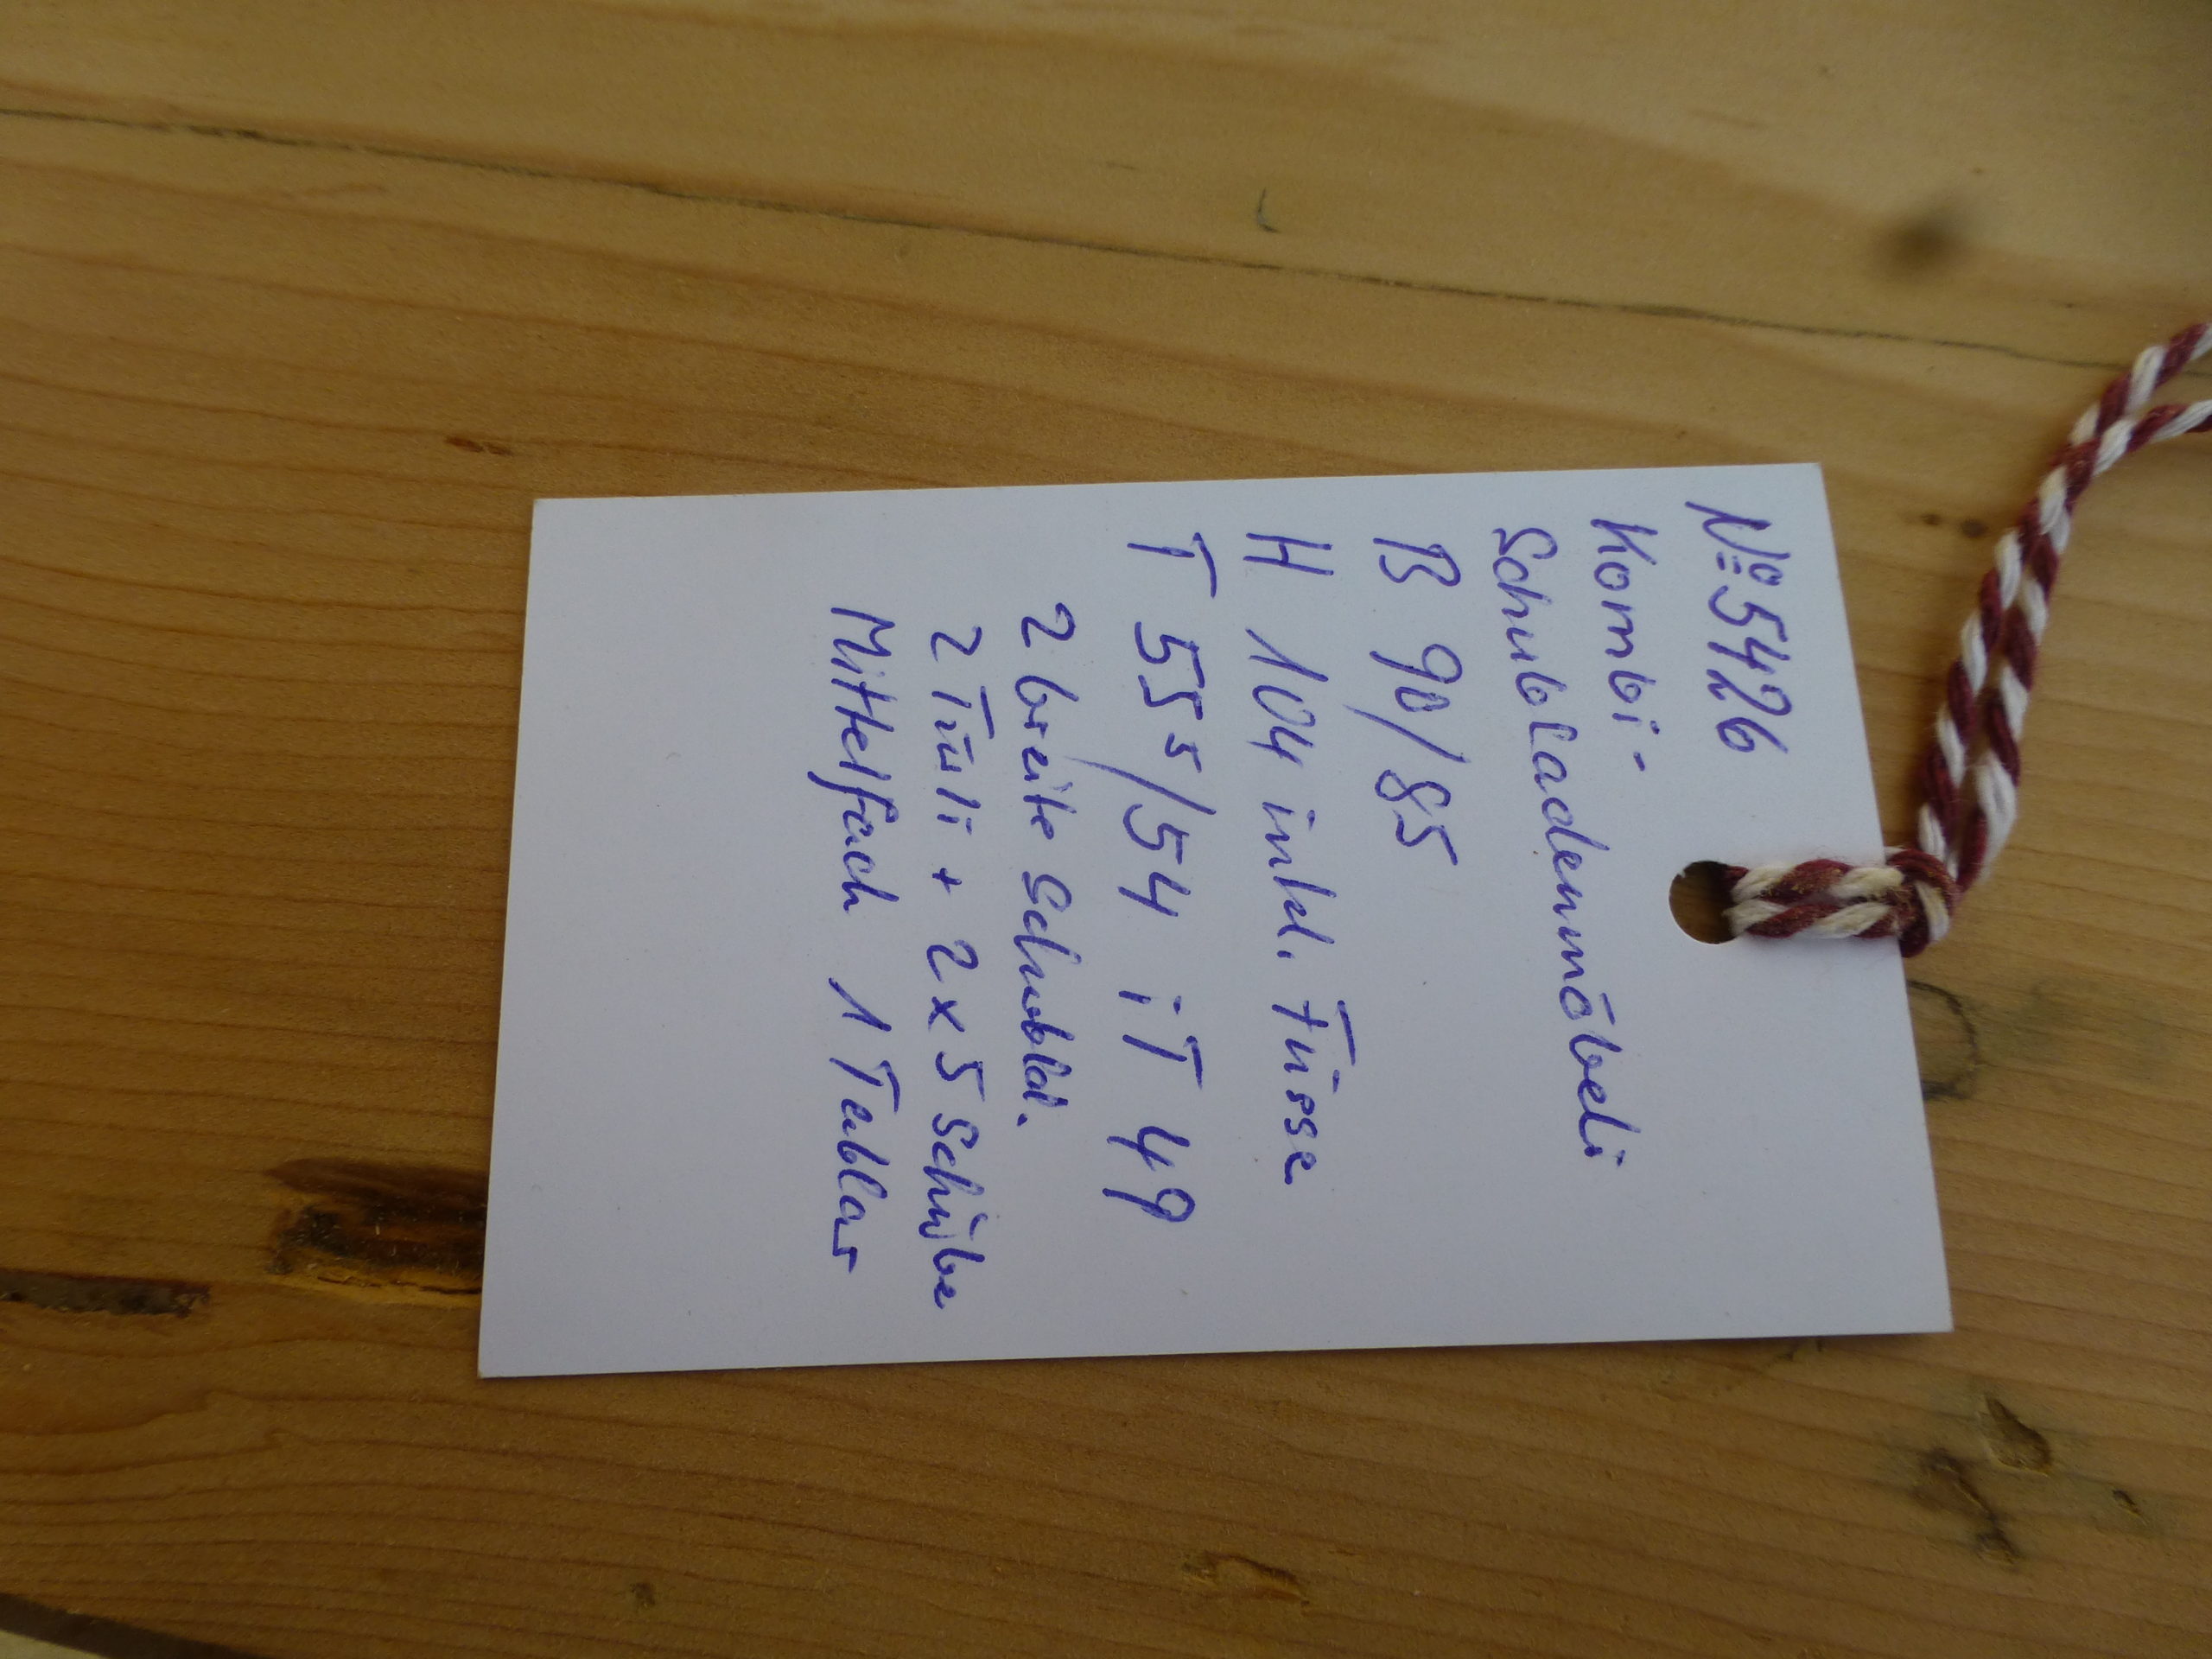 Nº 5426
Kombi-
Schubladenmöbeli
B 90/85
H 104 inkl. Füsse
T 55⁵/54 iT 49
2 breite Schubld.
2 Türli + 2x5 Schübe
Mittelfach 1 Tablar